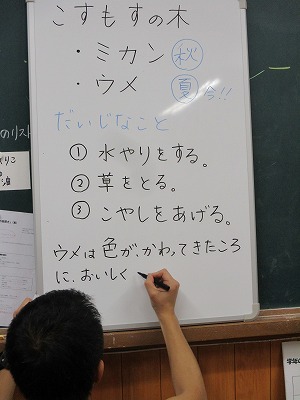 こすもすの木
・ミカン 秋
・ウメ 夏 今!!
だいじなこと
① 水やりをする。
② 草をとる。
③ こやしをあげる。
ウメは色が、かわってきたころ
に、おいしく
のリスト